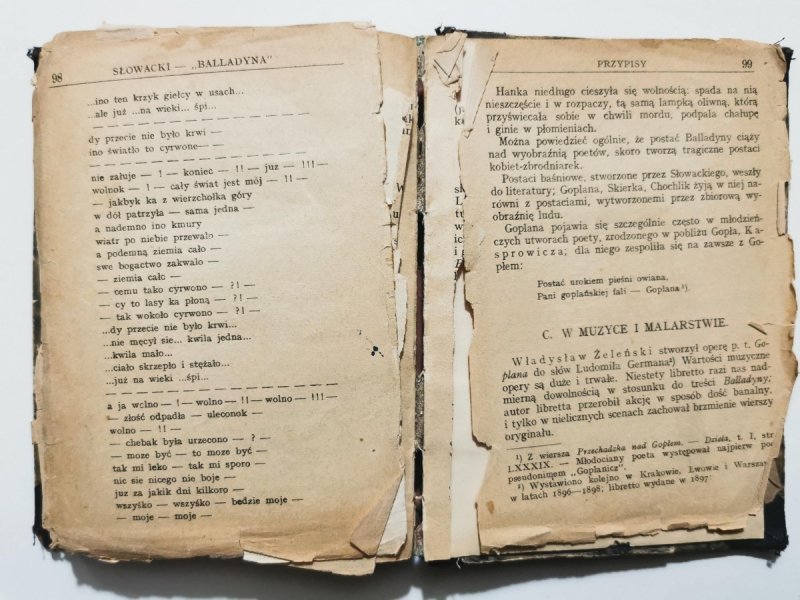 98 SŁOWACKI — „BALLADYNA”
...ino ten krzyk giełcy w usach...
...ale już ...na wieki... śpi...
dy przecie nie było krwi —
ino światło to cyrwone— —
nie załuje — ! — koniec — !! — juz — !!! —
wolnok — ! — cały świat jest mój — !! —
— jakbyk ka z wierzchołka góry
w dół patrzyła — sama jedna —
a nademno ino kmury
wiatr po niebie przewalo —
a podemną ziemia cało —
swe bogactwo zakwalo —
— ziemia cało —
— cemu tako cyrwono — ?! —
— cy to lasy ka płoną — ?! —
— tak wokoło cyrwono — ?! —
...dy przecie nie było krwi...
...nie męcył sie... kwila jedna...
...kwila mało...
...ciało skrzepło i stężało...
...już na wieki ...śpi...
a ja wolno — ! — wolno — !! — wolno — !!! —
— złość odpadła — uleconok —
wolno — !! —
— chebak była urzecono — ? —
— moze być — to moze być —
tak mi leko — tak mi sporo —
nic sie nicego nie boje —
juz za jakik dni kilkoro —
wszyśko — wszyśko — bedzie moje —
— moje — moje —
PRZYPISY 99
Hanka niedługo cieszyła się wolnością: spada na nią
nieszczęście i w rozpaczy, tą samą lampką oliwną, którą
przyświecała sobie w chwili mordu, podpala chałupę
i ginie w płomieniach.
Można powiedzieć ogólnie, że postać Balladyny ciąży
nad wyobraźnią poetów, skoro tworzą tragiczne postaci
kobiet-zbrodniarek.
Postaci baśniowe, stworzone przez Słowackiego, weszły
do literatury; Goplana, Skierka, Chochlik żyją w niej na-
równi z postaciami, wytworzonemi przez zbiorową wy-
obraźnię ludu.
Goplana pojawia się szczególnie często w młodzień-
czych utworach poety, zrodzonego w pobliżu Gopła, Ka-
sprowicza; dla niego zespoliła się na zawsze z Go-
płem:
Postać urokiem pieśni owiana,
Pani goplańskiej fali — Goplana¹).
C. W MUZYCE I MALARSTWIE.
Władysław Żeleński stworzył operę p. t. Go-
plana do słów Ludomiła Germana²) Wartości muzyczne
opery są duże i trwałe. Niestety libretto razi nas nad-
mierną dowolnością w stosunku do treści Balladyny;
autor libretta przerobił akcję w sposób dość banalny.
i tylko w nielicznych scenach zachował brzmienie wierszy
oryginału.
¹) Z wiersza Przechadzka nad Gopłem. — Dzieła, t. I, str
LXXXIX. — Młodociany poeta występował najpierw pod
pseudonimem „Goplanicz”.
²) Wystawiono kolejno w Krakowie, Lwowie i Warszaw
w latach 1896—1898; libretto wydane w 1897